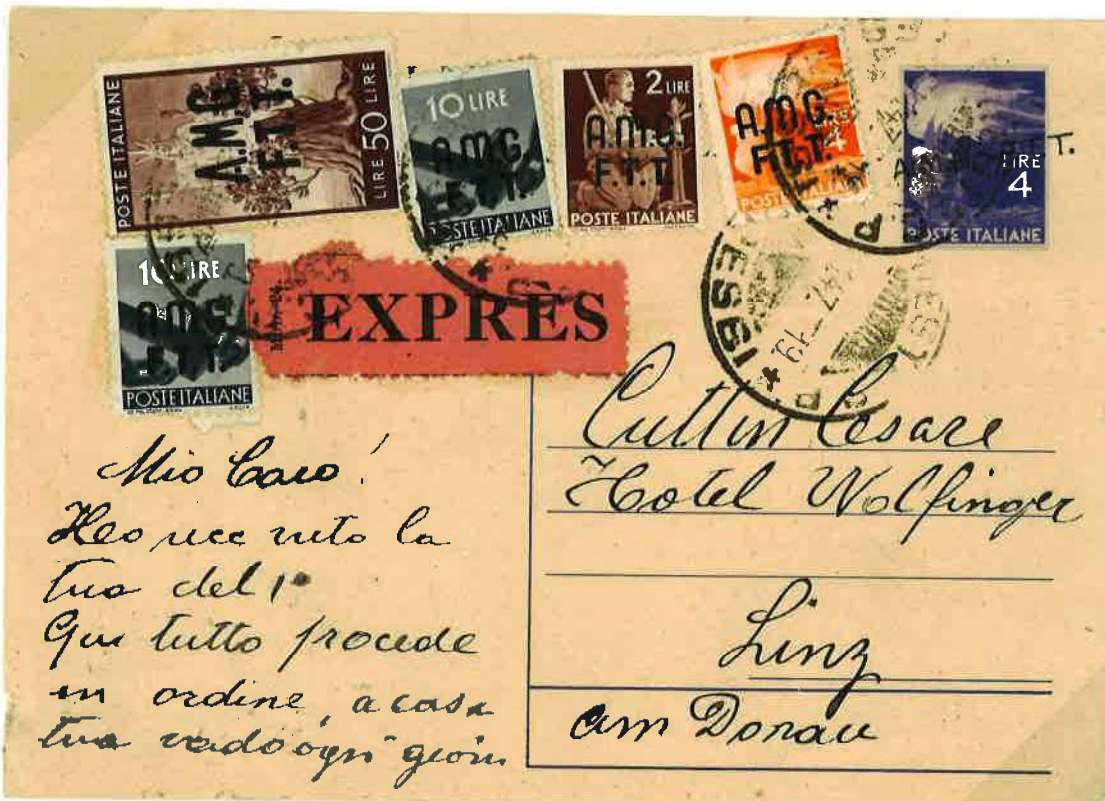 POSTE ITALIANE
LIRE 50 LIRE
A.M.G.
F.T.T.
10 LIRE
A.M.G.
F.T.T.
POSTE ITALIANE
2 LIRE
A.M.G.
F.T.T.
POSTE ITALIANE
A.M.G.
F.T.T.
LIRE
4
POSTE ITALIANE
LIRE
4
POSTE ITALIANE
10 LIRE
A.M.G.
F.T.T.
POSTE ITALIANE
EXPRÈS
Mio Caro!
Ho ricevuto la
tua del 1°
Qui tutto procede
in ordine, a casa
tua vado ogni giorn
Cuttin Cesare
Hotel Wolfinger
Linz
am Donau